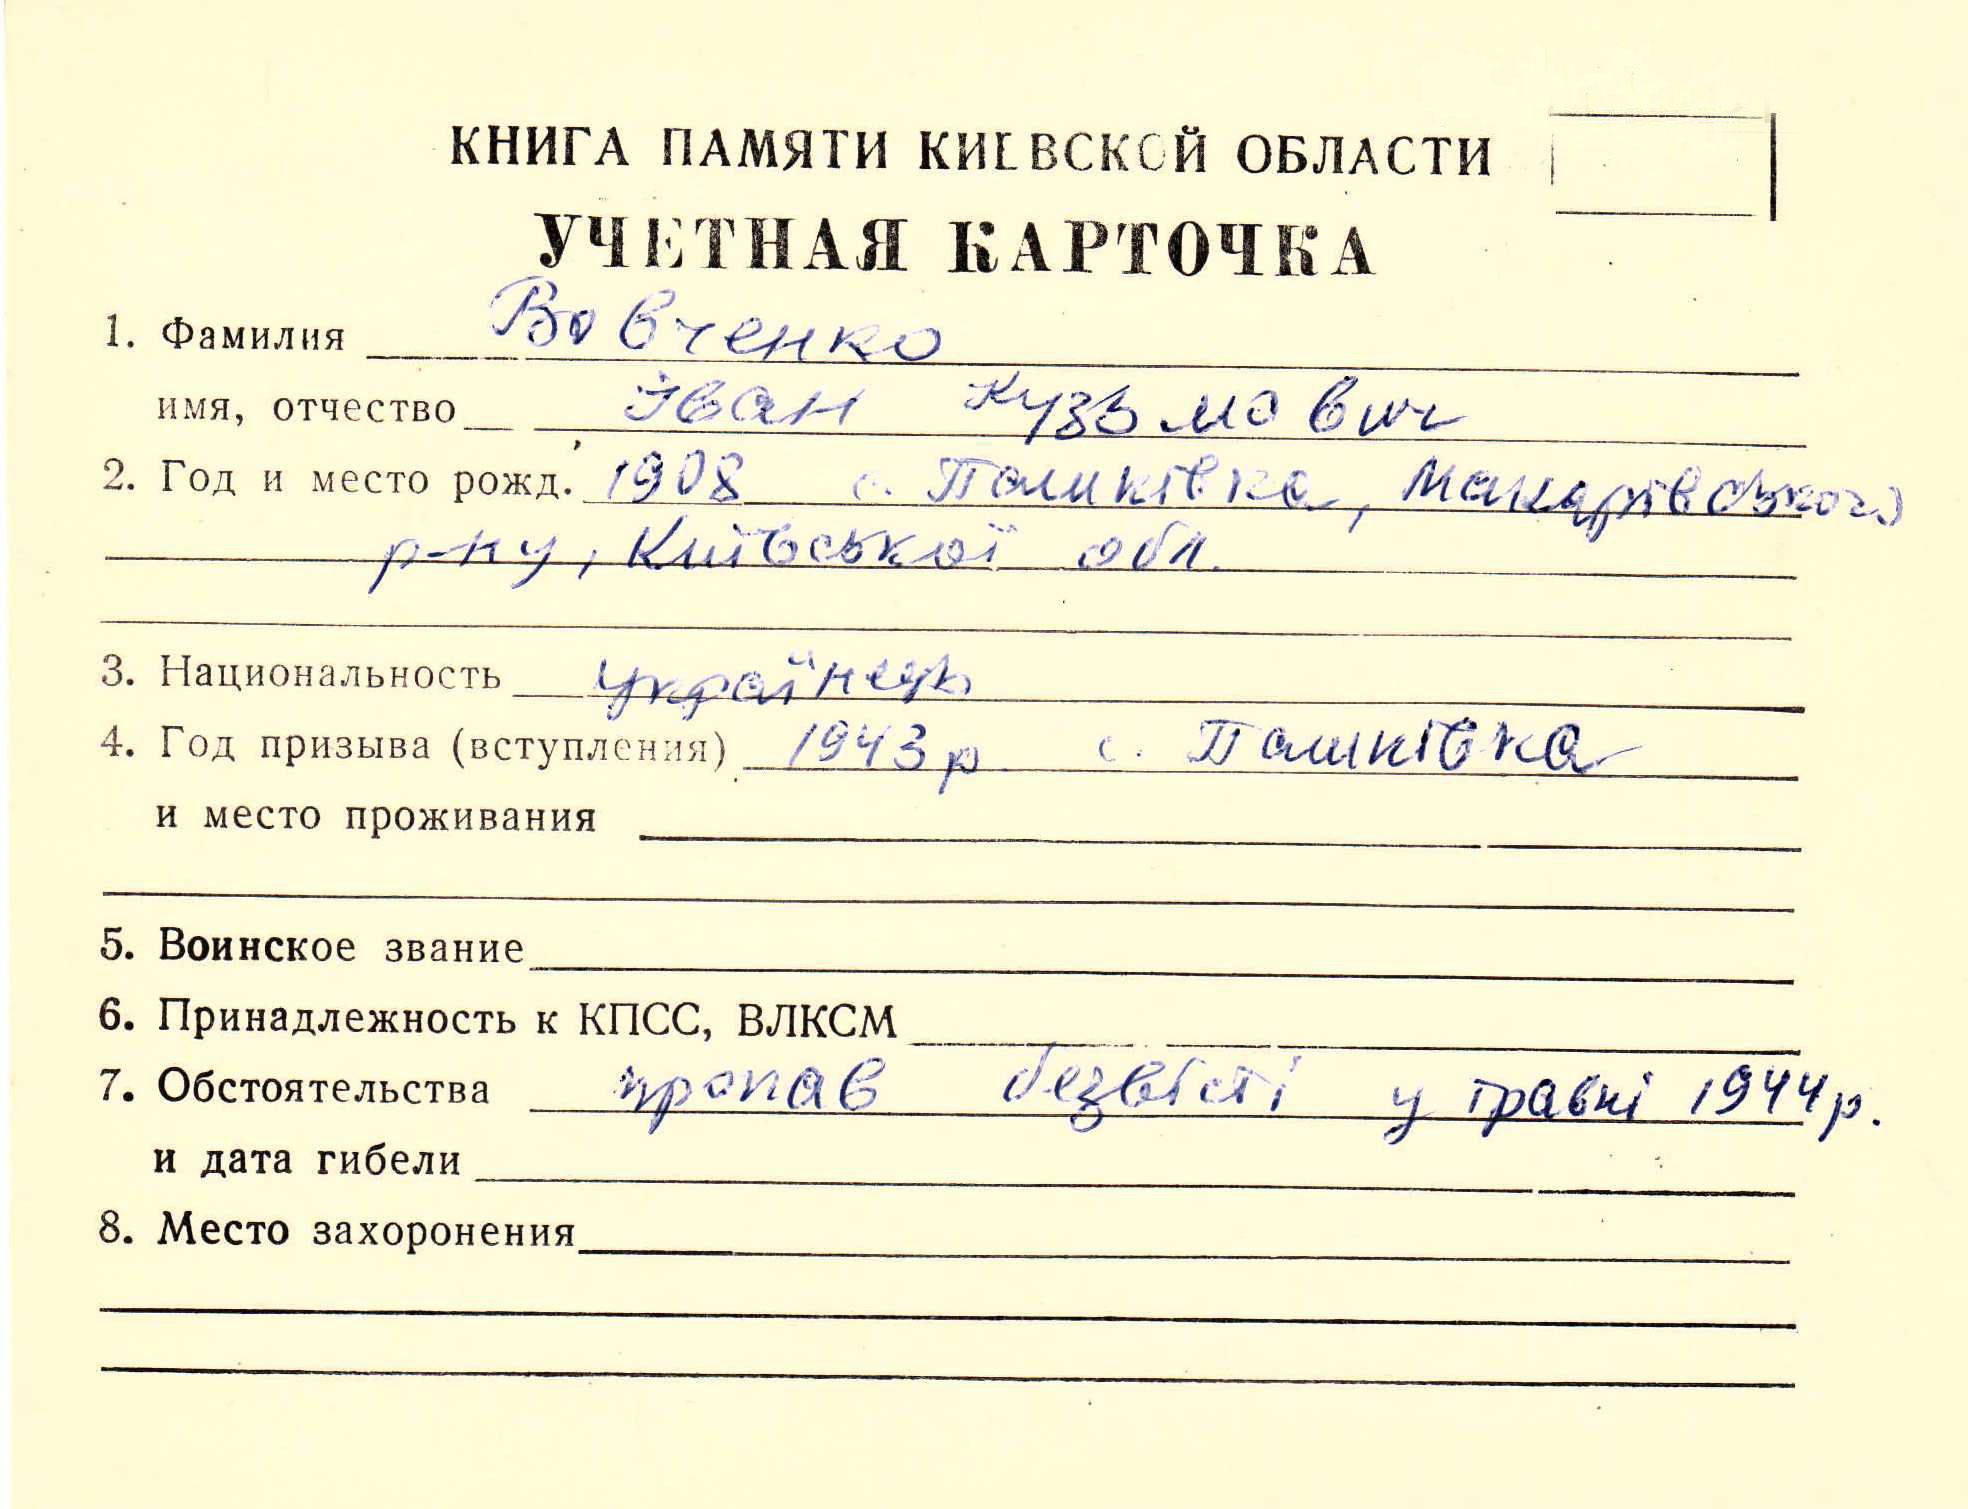 КНИГА ПАМЯТИ КИЕВСКОЙ ОБЛАСТИ
УЧЕТНАЯ КАРТОЧКА
1. Фамилия Вовченко
имя, отчество Іван Кузьмович
2. Год и место рожд. 1908 с. Пашківка, Макарівського
р-ну, Київської обл.
3. Национальность українець
4. Год призыва (вступления) 1943 р с. Пашківка
и место проживания
5. Воинское звание
6. Принадлежность к КПСС, ВЛКСМ
7. Обстоятельства пропав безвісті у травні 1944 р.
и дата гибели
8. Место захоронения